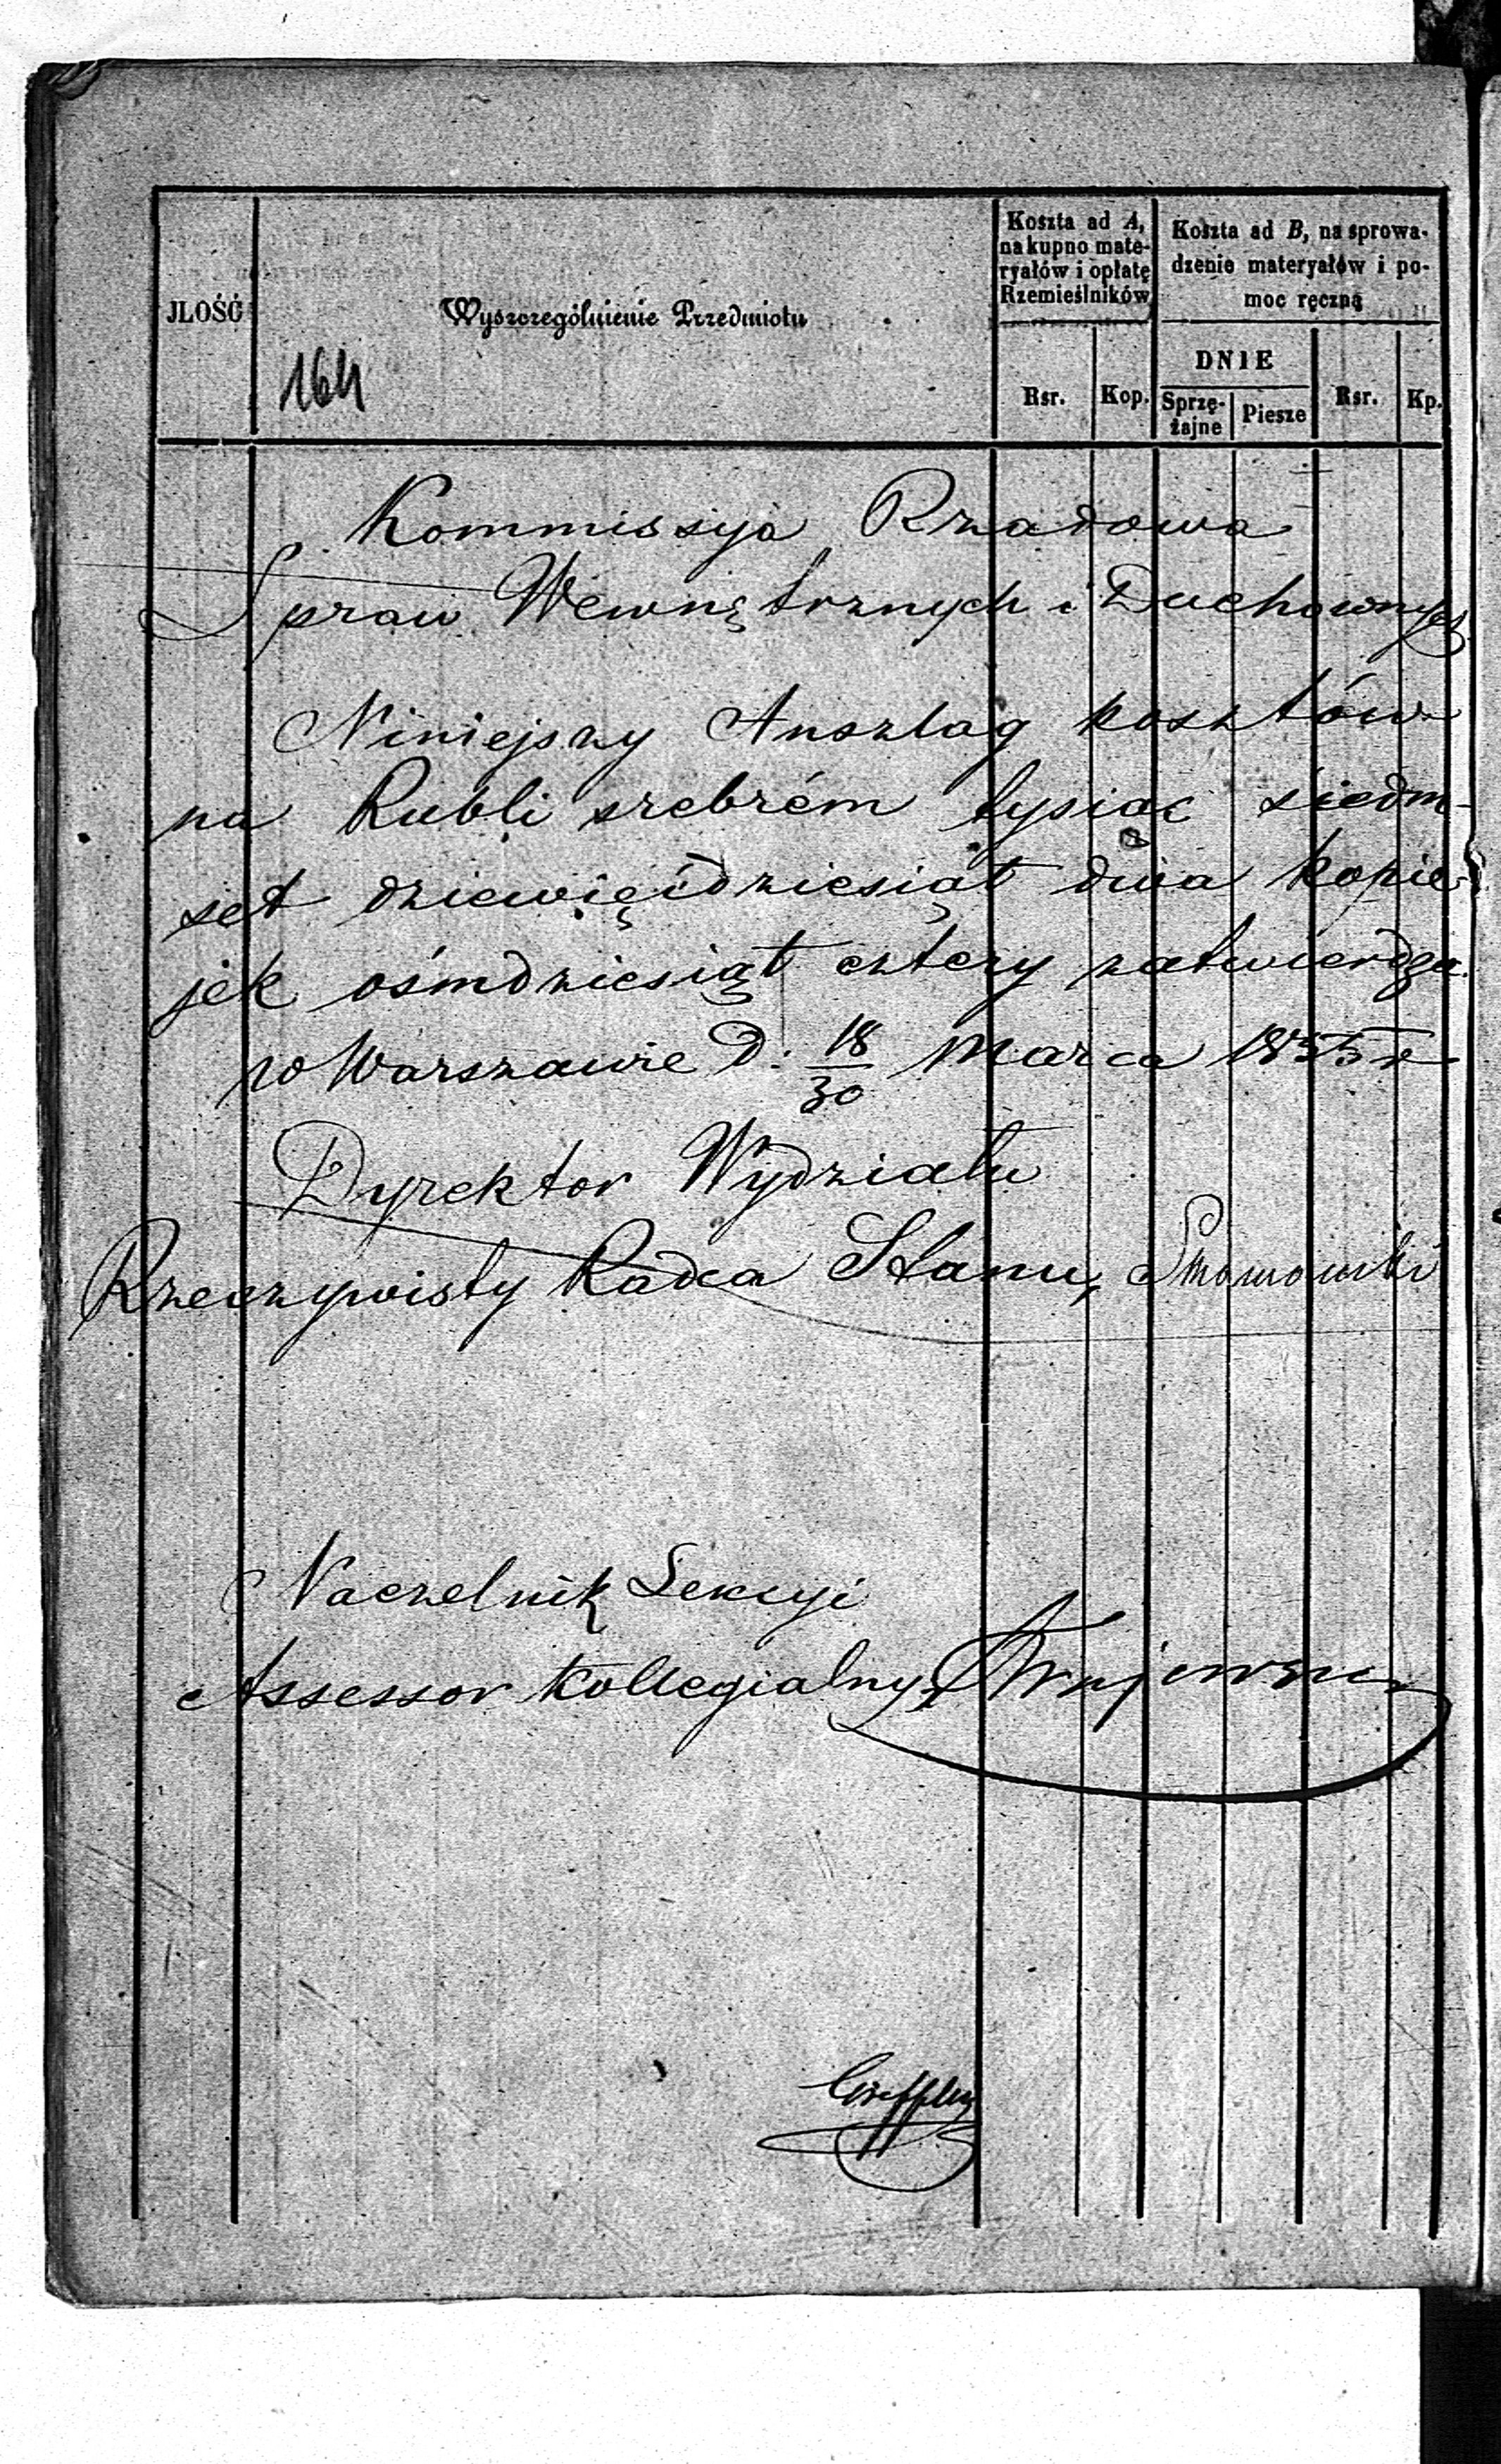 JLOŚĆ
Wyszczególnienie Przedmiotu
Koszta ad A,
na kupno mate-
ryałów i opłatę
Rzemieślników
Koszta ad B, na sprowa-
dzenie materyałów i po-
moc ręczną
DNIE
Rsr.
Kop.
Sprzę-
żajne
Piesze
Rsr.
Kp.
164
Kommissyja Rządowa
Spraw Wewnętrznych i Duchownych
Niniejszy Anszlag kosztów
na Rubli srebrém tysiąc siedm-
set dziewięćdziesiąt dwa kopie-
jek ośmdziesiąt cztery zatwierdza.
w Warszawie d: 18/30 Marca 1855 r
Dyrektor Wydziału
Rzeczywisty Radca Stanu,
Naczelnik Sekcyi
Assessor Kollegialny,